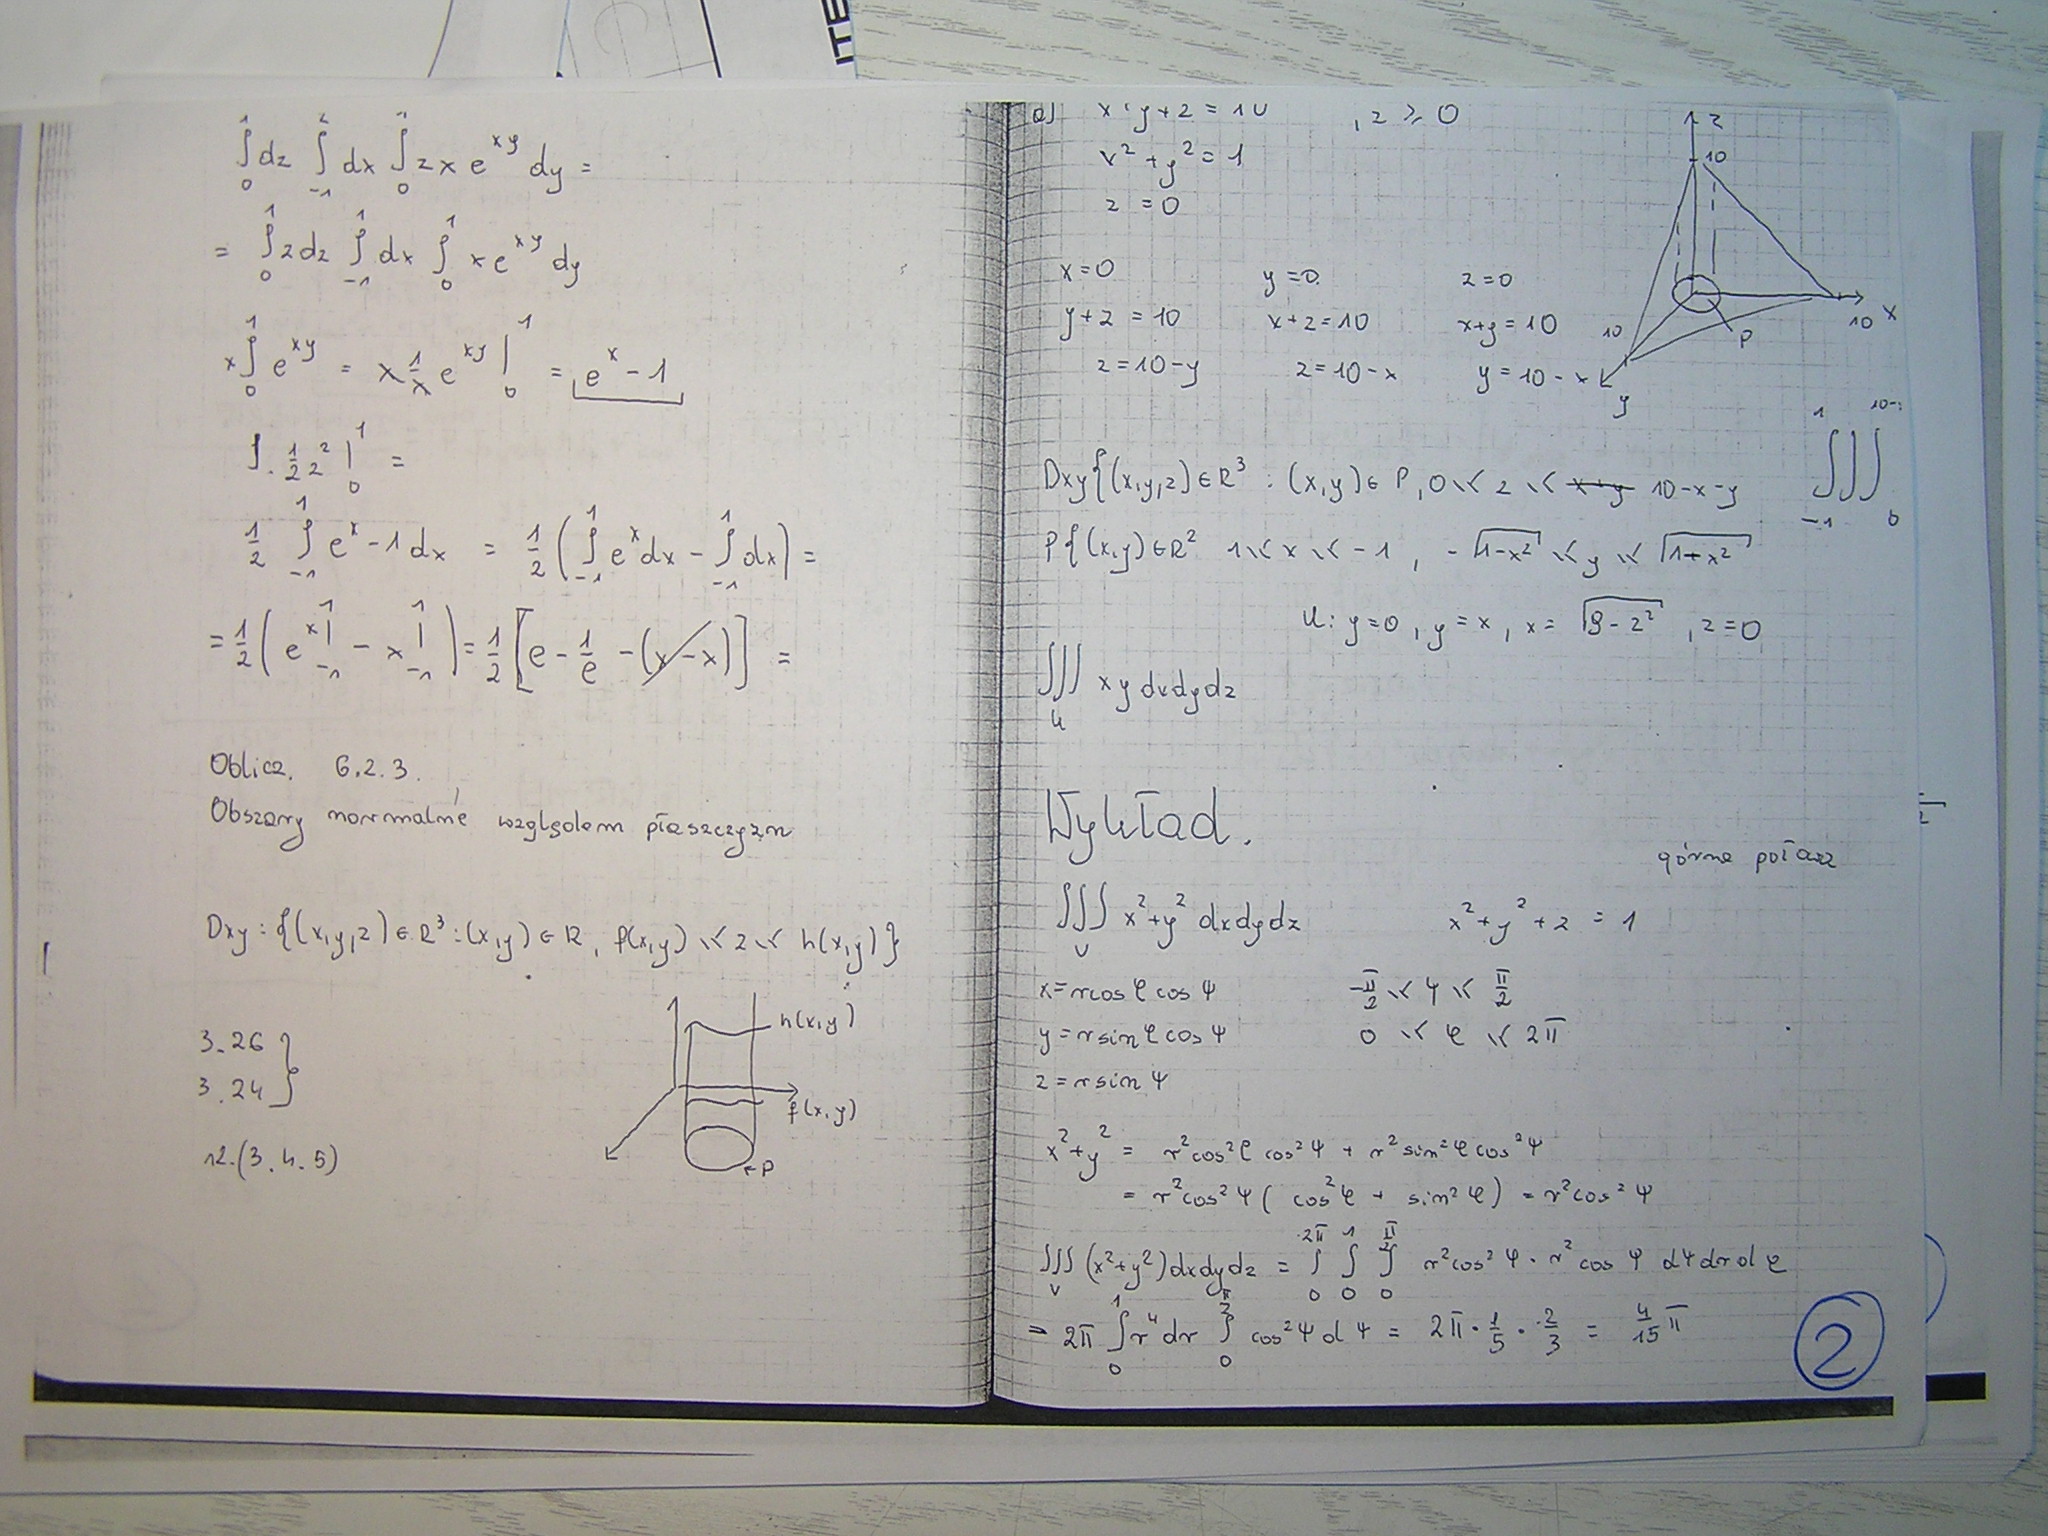 ITE
∫₀¹ dz ∫₋₁¹ dx ∫₀¹ z x e^{xy} dy =
= ∫₀¹ z dz ∫₋₁¹ dx ∫₀¹ x e^{xy} dy
x ∫₀¹ e^{xy} = x 1/x e^{xy} |₀¹ = e^x - 1
∫ · 1/2 z² |₀¹ =
1/2 ∫₋₁¹ e^x - 1 dx = 1/2 ( ∫₋₁¹ e^x dx - ∫₋₁¹ dx ) =
= 1/2 ( e^x |₋₁¹ - x |₋₁¹ ) = 1/2 [ e - 1/e - (x - x) ] =
Oblicz. 6.2.3.
Obszary normalne względem płaszczyzn
Dxy : {(x,y,z) ∈ R³ : (x,y) ∈ R, f(x,y) ≤ z ≤ h(x,y)}
h(x,y)
f(x,y)
P
3.26
3.24
12.(3.4.5)
a) x + y + z = 10 , z ≥ 0
x² + y² = 1
z = 0
x=0 y=0 z=0
y+z = 10 x+z = 10 x+y = 10
z = 10-y z = 10-x y = 10-x
z
10
10 x
10
y
P
Dxy {(x,y,z) ∈ R³ : (x,y) ∈ P, 0 ≤ z ≤ x+y 10-x-y
∫∫∫ 1 -1 10- 0
P {(x,y) ∈ R² 1 ≤ x ≤ -1 , -√(1-x²) ≤ y ≤ √(1+x²)
U: y=0, y=x, x=√(9-z²), z=0
∫∫∫_U xy dxdydz
Wykład.
górna połasz
∫∫∫_V x²+y² dxdydz x²+y²+z = 1
x = r cos φ cos ψ -π/2 ≤ ψ ≤ π/2
y = r sin φ cos ψ 0 ≤ φ ≤ 2π
z = r sin ψ
x²+y² = r² cos² φ cos² ψ + r² sin² φ cos² ψ
= r² cos² ψ ( cos² φ + sin² φ) = r² cos² ψ
∫∫∫_V (x²+y²) dxdydz = ∫₀^{2π} ∫₀¹ ∫₀^{π/2} r² cos² ψ · r² cos ψ dψ dr dφ
= 2π ∫₀¹ r⁴ dr ∫₀^{π/2} cos² ψ dψ = 2π · 1/5 · 2/3 = 4/15 π
2